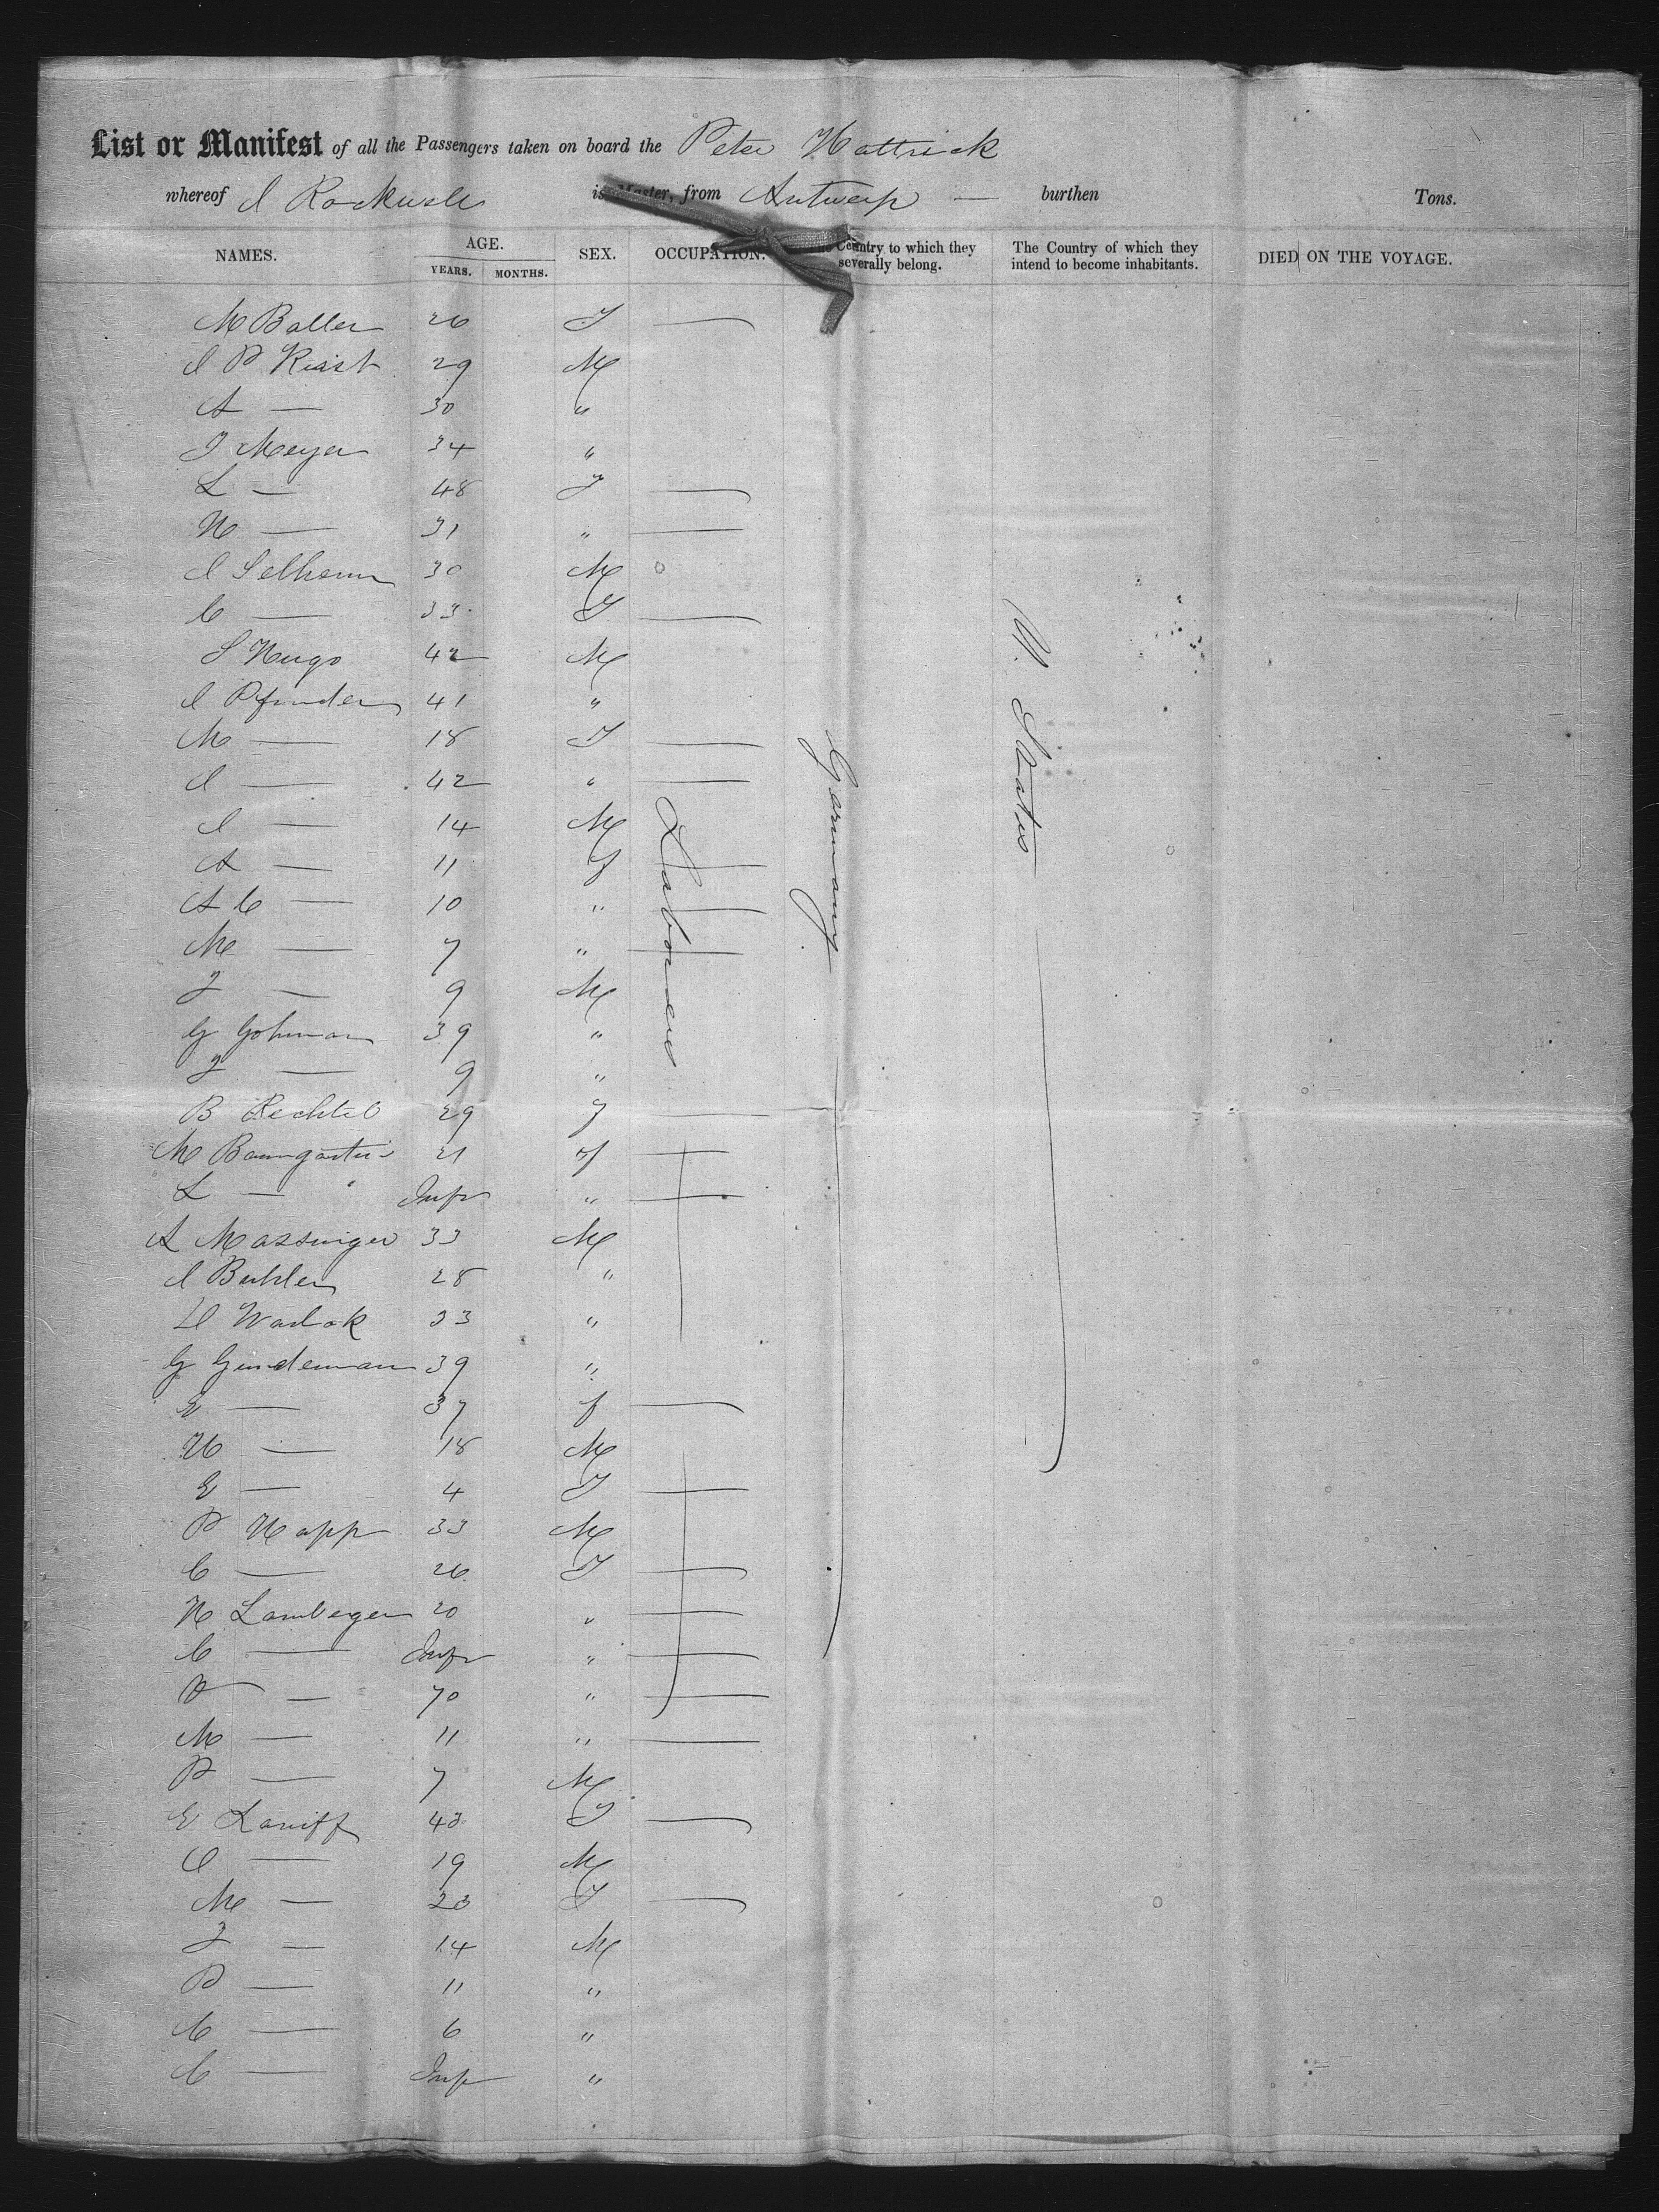 List or Manifest of all the Passengers taken on board the Peter Hattrick
whereof I Rockwell is Master, from Antwerp — burthen Tons.
NAMES. AGE. YEARS. MONTHS. SEX. OCCUPATION. The Country to which they severally belong. The Country of which they intend to become inhabitants. DIED ON THE VOYAGE.
M Baller 26 F —
I P Kiast 29 M
A — 30 "
F Meyer 34 "
L — 48 F —
H — 31 " —
I Selheim 30 M
C — 33 F —
S Hugo 42 M
I Pfunder 41 "
M — 18 F —
I — 42 " —
I — 14 M
A — 11 f —
A C — 10 " —
M — 7 " —
F — 9 M
G Gohman 39 "
F — 9 "
B Bechtel 29 F —
M Baumgartner 21 f —
L — Inft " —
A Massinger 33 M
I Buhler 28 "
D Warlok 33 "
G Gundeman 39 "
E — 37 f —
H — 18 M
E — 4 F —
P Happ 33 M
C — 26 F —
H Lamberger 20 " —
C — Inft " —
P — 70 " —
M — 11 " —
P — 7 M
E Laniff 43 F —
O — 19 M
M — 23 F —
F — 14 M
P — 11 "
C — 6 "
C — Inft "
Laborers
Germany
U. States